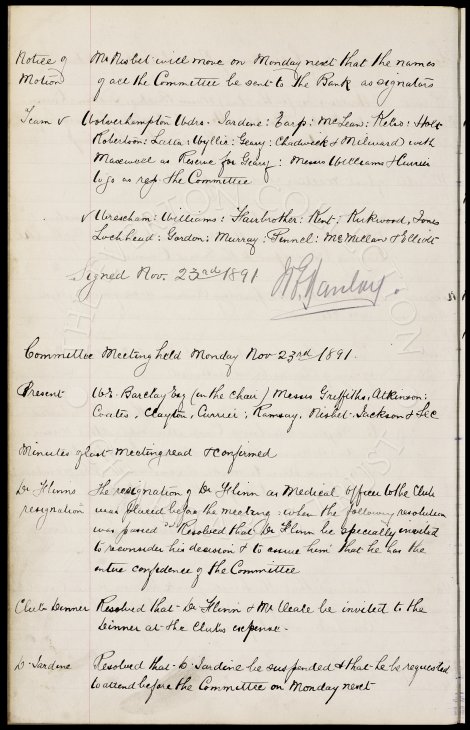 Notice of Mr Nisbet will move on Monday next that the names
Motion of all the Committee be sent to the Bank as signators
Team v Wolverhampton Wdrs. Jardine: Earp: McLean: Kelso: Holt
Robertson: Latta: Wyllie: Geary: Chadwick & Milward) with
Maxwell as Reserve for Geary: Messrs Williams & Currier
to go as rep the Committee
v Wrexham: Williams: Fairbrother: Kent: Kirkwood, Jones
Lochhead: Gordon: Murray: Pinnel: McMillan & Elliott
Signed Nov. 23rd 1891
Committee Meeting held Monday Nov 23rd 1891.
Present W.E. Barclay Esq (in the Chair) Messrs Griffiths, Atkinson:
Coates, Clayton, Currier; Ramsay, Nisbet. Jackson & Sec
Minutes of last meeting read & confirmed
Dr Flinns The resignation of Dr Flinn as Medical Officer to the Club
resignation was placed before the meeting: when the following resolution
was passed Resolved that Dr Flinn be specially invited
to reconsider his decision & to assure him that he has the
entire confidence of the Committee
Club Dinner Resolved that Dr Flinn & Mr Neale be invited to the
Dinner at the Clubs expense.
D Jardine Resolved that D Jardine be suspended & that he be requested
to attend before the Committee on Monday next